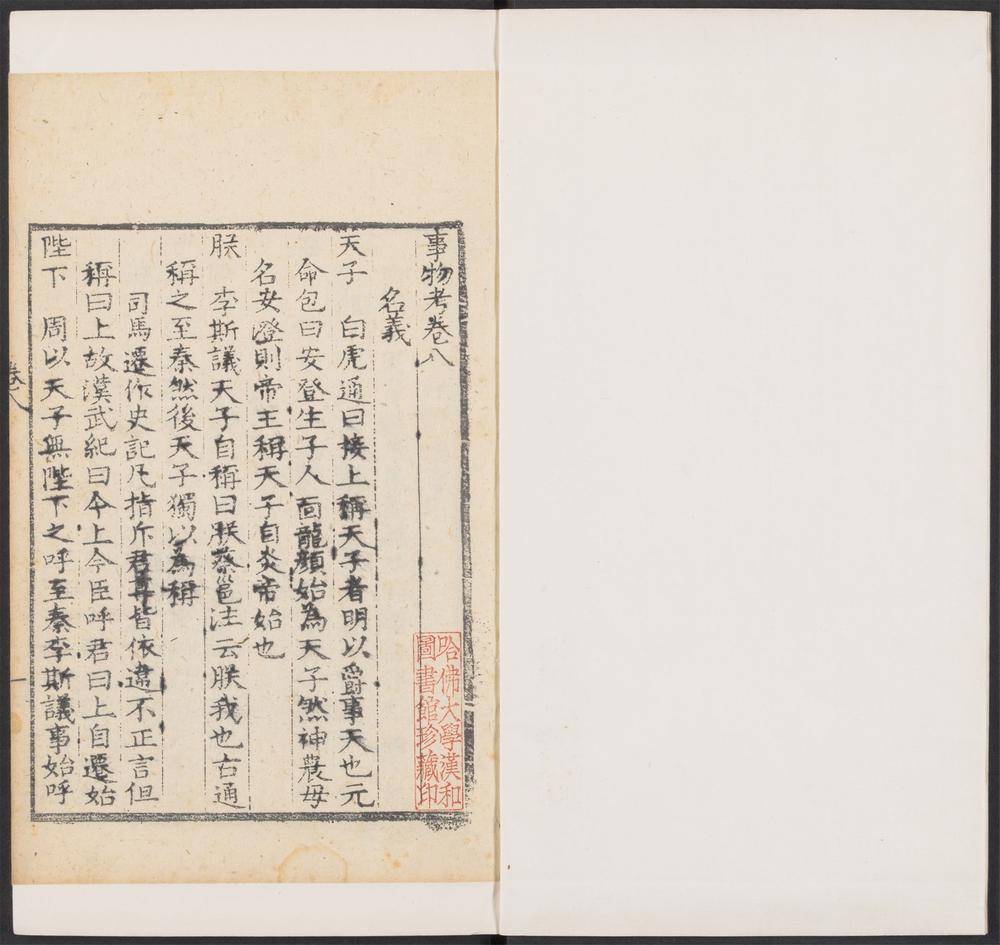 事物考卷八
名義
天子　白虎通曰接上稱天子者明以爵事天也元
命包曰安登生子人面龍顏始為天子然神農母
名安澄則帝王稱天子自炎帝始也
朕　李斯議天子自稱曰朕蔡邕注云朕我也古通
稱之至秦然後天子獨以為稱
司馬遷作史記凡指斥君尊皆依違不正言但
稱曰上故漢武紀曰今上今臣呼君曰上自遷始
陛下　周以天子無陛下之呼至秦李斯議事始呼
卷八
一
哈佛大學漢和
圖書館珍藏印